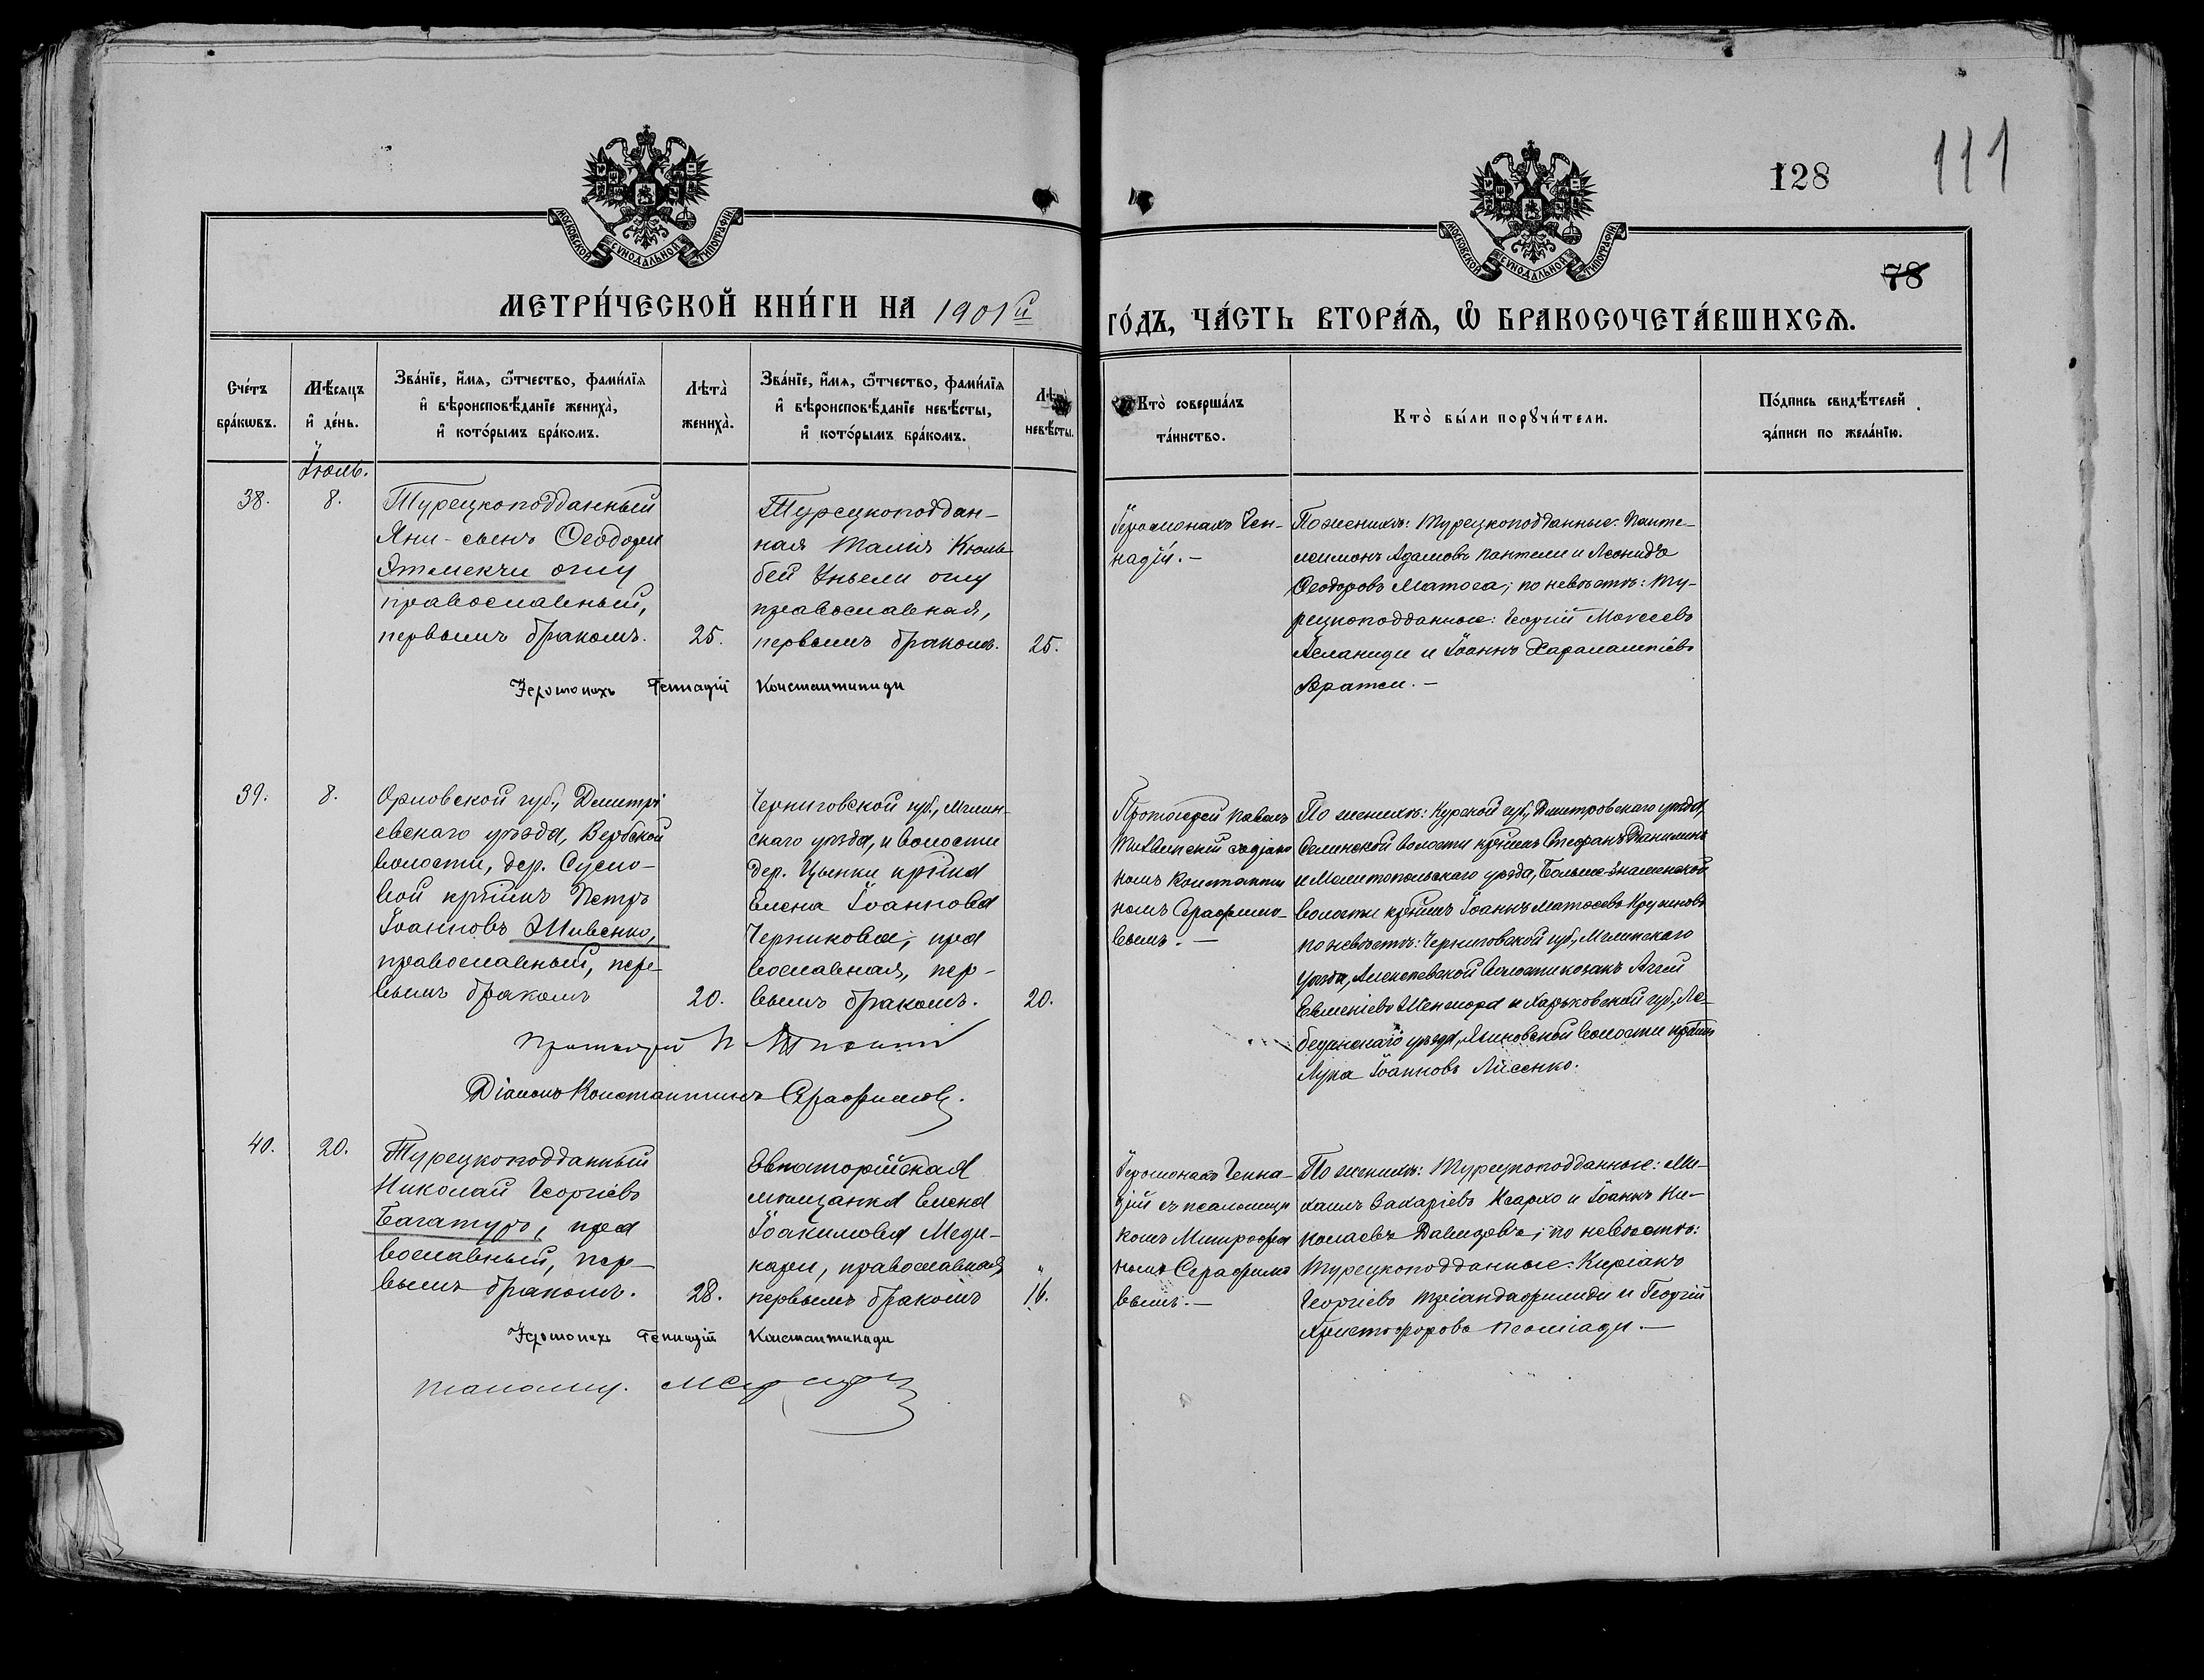 111
128
78
МОСКОВСКОЙ СУНОДАЛЬНОЙ ТИПОГРАФІИ
МОСКОВСКОЙ СУНОДАЛЬНОЙ ТИПОГРАФІИ
МЕТРИ́ЧЕСКОЙ КНИ́ГИ НА 1901й
ГО́ДЪ, ЧА́СТЬ ВТОРА́Ѧ, Ѡ БРАКОСОЧЕТА́ВШИХСѦ.
Сче́тъ
бра́кѡвъ.
Мѣ́сяцъ
и҆ де́нь.
Зва́нїе, и҆́мѧ, ѻ҆́тчество, фами́лїѧ
и҆ вѣроисповѣ́данїе жениха̀,
и҆ кото́рымъ бра́комъ.
Лѣта̀
жениха̀.
Зва́нїе, и҆́мѧ, ѻ҆́тчество, фами́лїѧ
и҆ вѣроисповѣ́данїе невѣ́сты,
и҆ кото́рымъ бра́комъ.
невѣ́сты.
Кто̀ соверша́лъ
та́инство.
Кто̀ бы́ли порꙋчи́тели.
По́дпись свидѣ́телей
за́писи по жела́нїю.
Іюль.
38.
8.
Турецкоподданный
Яни-сынъ Ѳеодори
Этмекчи оглу
православный,
первымъ бракомъ.
25.
Турецкоподдан-
ная Талія Кюль
бей Уньели оглу
православная,
первымъ бракомъ.
25.
Іеромонахъ Ген-
надій.-
По женихѣ: Турецкоподданные: Панте-
леимонъ Адамовъ Пантели и Леонидъ
Ѳеодоровъ Матога; по невѣстѣ: Ту-
рецкоподданные: Георгій Моѵсеевъ
Асланиди и Іоаннъ Харалампіевъ
Вратеи.-
Іеромонахъ Геннадій Константиниди
39.
8.
Орловской губ., Дмитрі
евскаго уѣзда, Вербской
волости, дер. Сусло-
вой кр-нинъ Петръ
Іоанновъ Шивенко,
православный, пер-
вымъ бракомъ
20.
Черниговской губ., Мглин-
скаго уѣзда, и волости
дер. Цынки кр-нка
Елена Іоаннова
Черникова, пра
вославная, пер-
вымъ бракомъ.
20.
Протоіерей Павелъ
Тихвинскій съ діако
номъ Константи
номъ Серафимо-
вымъ.-
По женихѣ: Курской губ., Дмитровскаго уѣзда,
Селинской волости кр-нинъ Стефанъ Данилинъ
и Мелитопольскаго уѣзда, Больше-Знаменской
волости кр-нинъ Іоаннъ Матѳеевъ Кружновъ
по невѣстѣ: Черниговской губ., Мглинскаго
уѣзда, Алексеевской волости козакъ Агей
Евменіевъ Шеншора и Харьковской губ., Ле-
бединскаго уѣзда, волости кр-нинъ
Лука Іоанновъ Лисенко.
Протоіерей П. Тихвинскій
Діаконъ Константинъ Серафимовъ.
40.
20.
Турецкоподданный
Николай Георгіевъ
Багатуръ, пра
вославный, пер-
вымъ бракомъ.
28.
Евпаторійская
мѣщанка Елена
Іоакимова Меди-
нари, православная,
первымъ бракомъ
16.
Іеромонахъ Генна-
дій съ псаломщи
комъ Митрофа
номъ Серафимо
вымъ.-
По женихѣ: Турецкоподданные: Ми-
хаилъ Захаріевъ Ксархо и Іоаннъ Ни-
колаевъ Давидовъ; по невѣстѣ:
Турецкоподданные: Киріакъ
Георгіевъ Тріандафилиди и Георгій
Христофоровъ Псоміади.-
Іеромонахъ Геннадій Константиниди